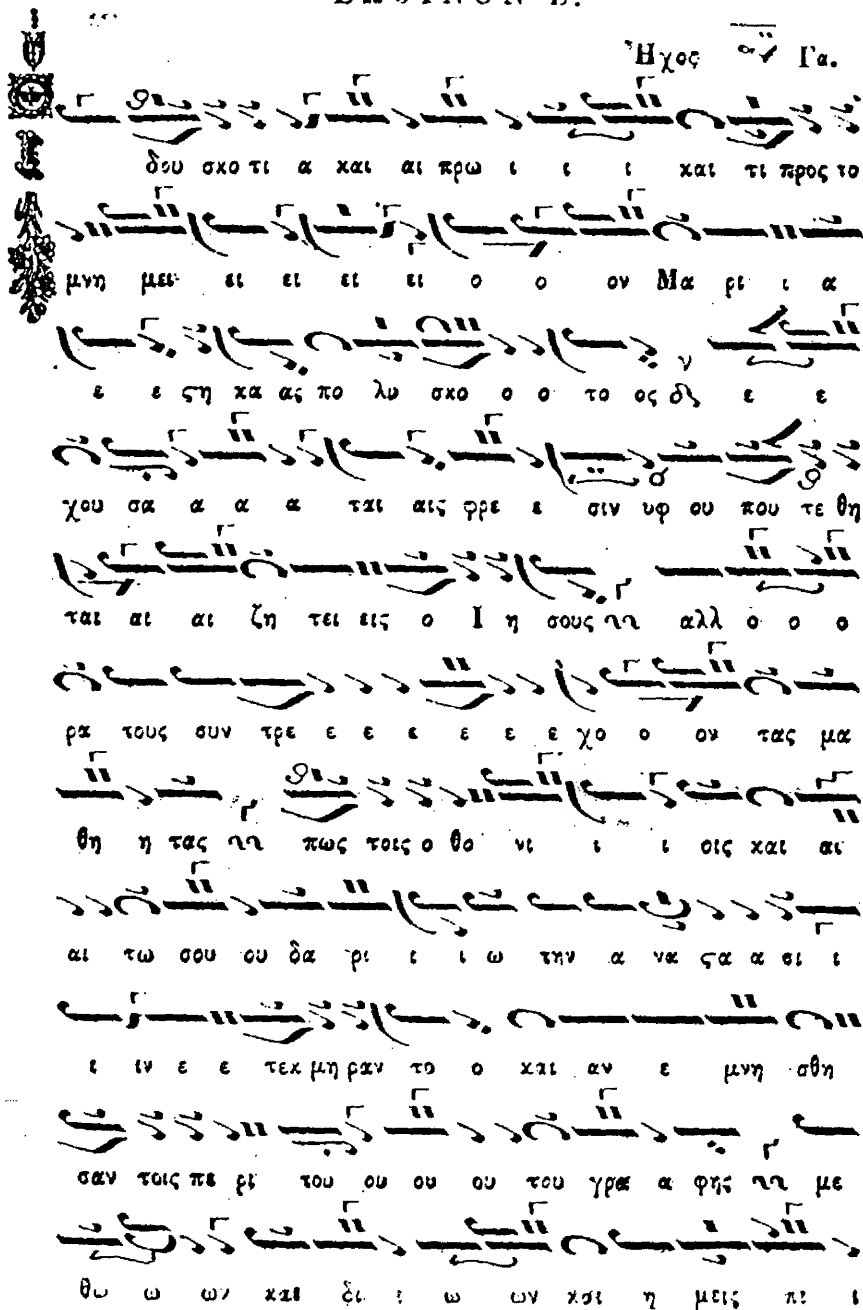 Ἦχος Γα.
δου σκο τι α και αι πρω ι ι ι και τι προς το
μνη μει ει ει ει ει ο ο ον Μα ρι ι α
ε ε ϛη κα ας πο λυ σκο ο ο το ος δι ε ε
χου σα α α α ται αις φρε ε σιν υφ ου που τε θη
ται αι αι ζη τει εις ο Ι η σους αλλ ο ο ο
ρα τους συν τρε ε ε ε ε ε ε χο ο ον τας μα
θη η τας πως τοις ο θο νι ι ι οις και αι
αι τω σου ου δα ρι ι ι ω την α να ϛα α σι ι
ι ιν ε ε τεκ μη ραν το ο και αν ε μνη σθη
σαν τοις πε ρι του ου ου ου του γρα α φης με
θω ω ων και δι ι ω ων και η μεις πι ι